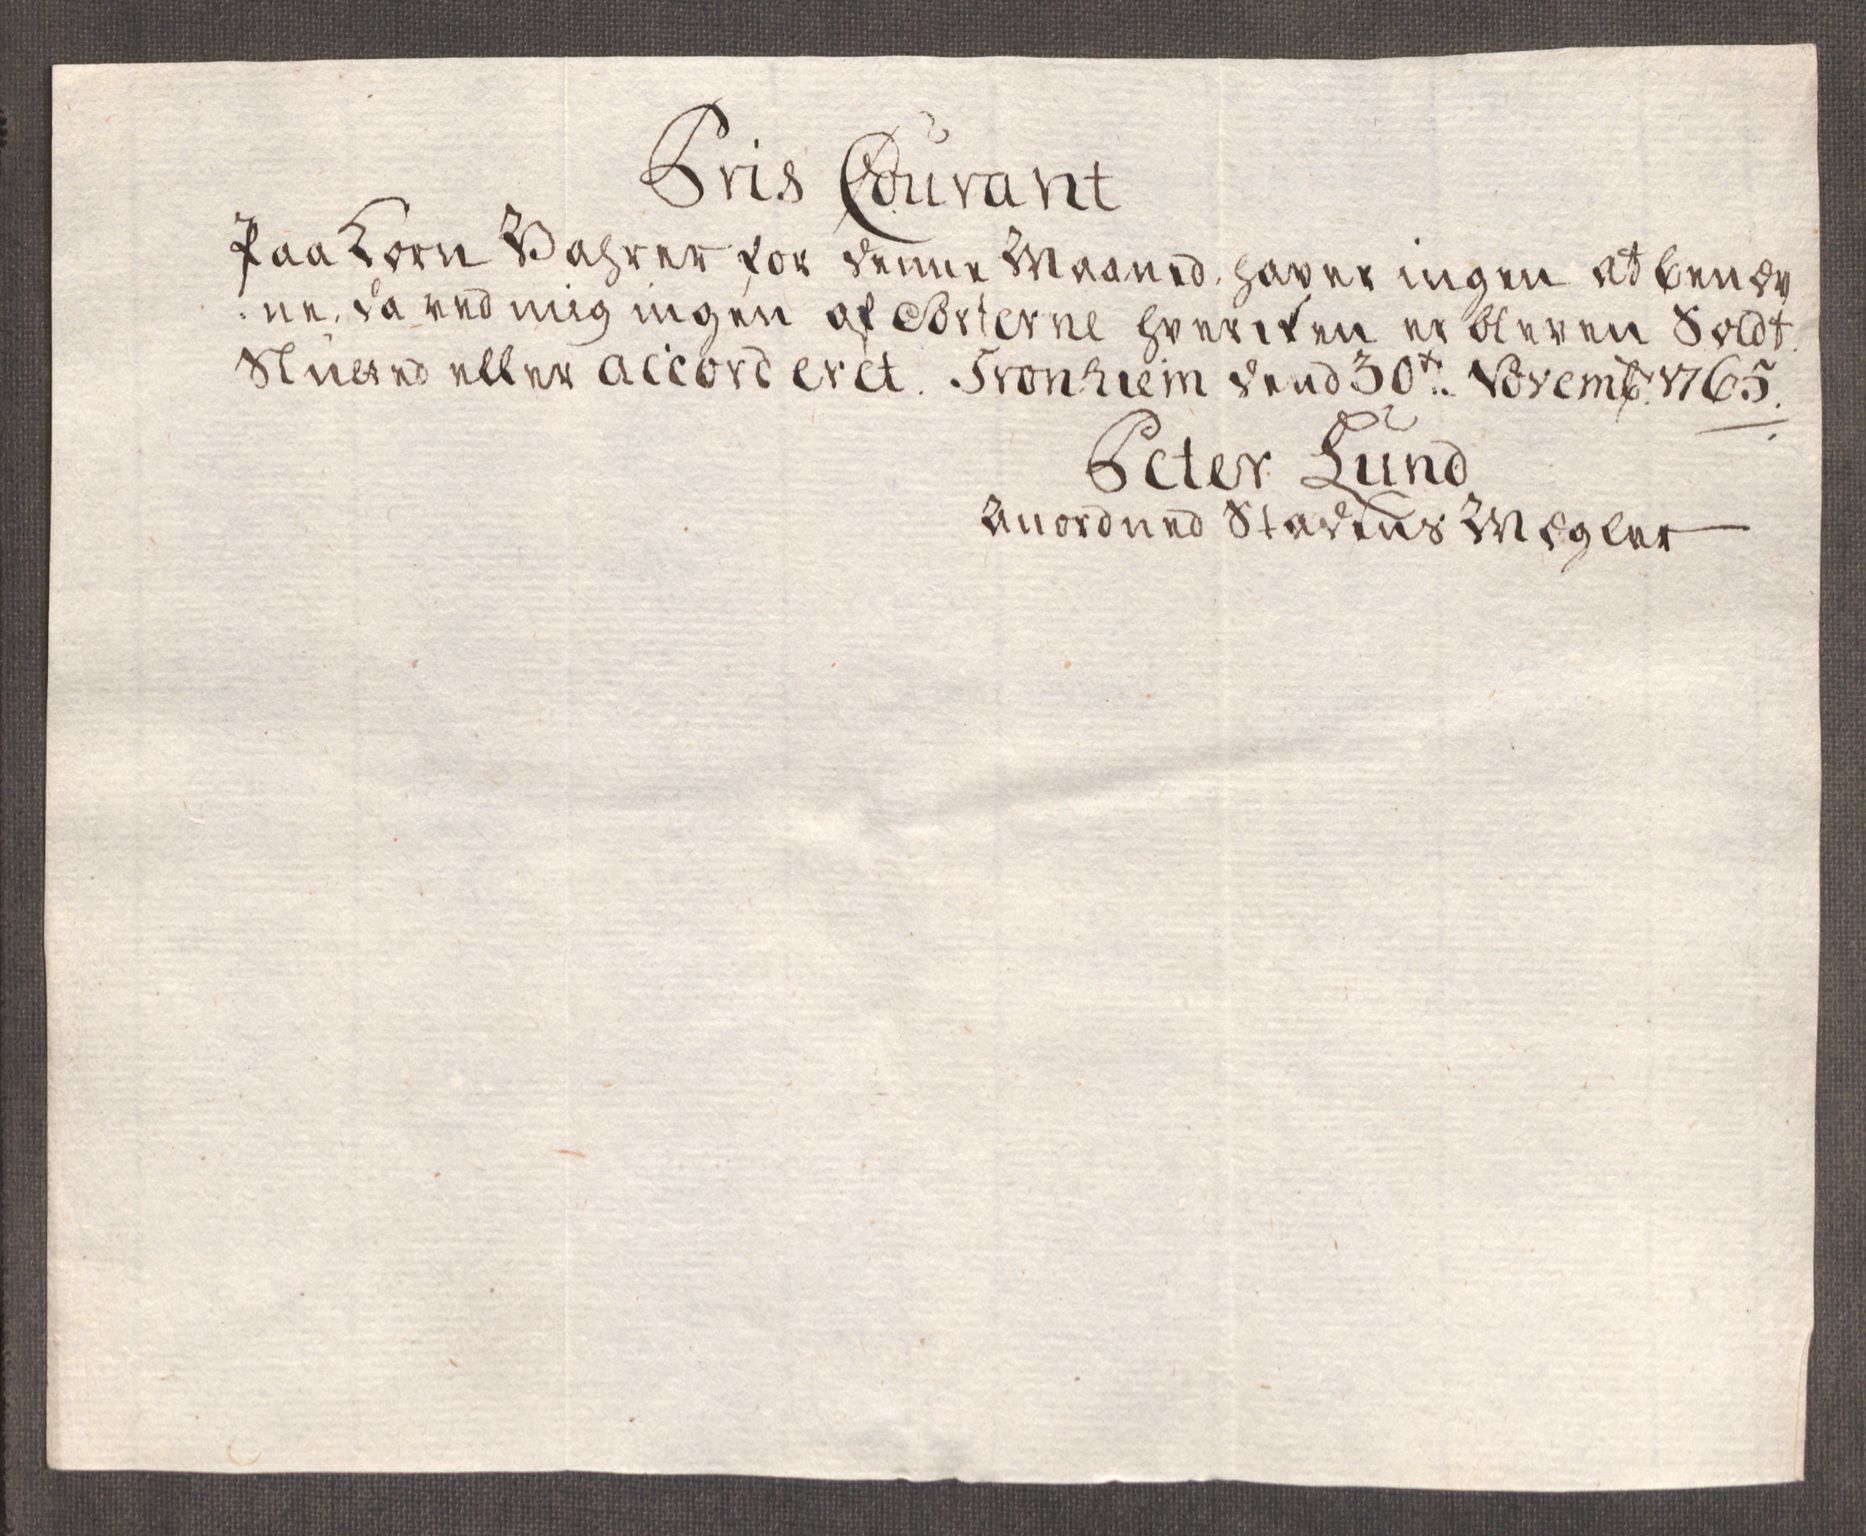 Pris Courant
Paa Korn Vahrer for denne Maaned. haver ingen at benæv
:ne, da ved mig ingen af Sorterne hverken er bleven Soldt.
Slutted eller accorderet. Tronhiem dend 30te Novembr. 1765.
Peter Lund
Anordned Stadens Mægler